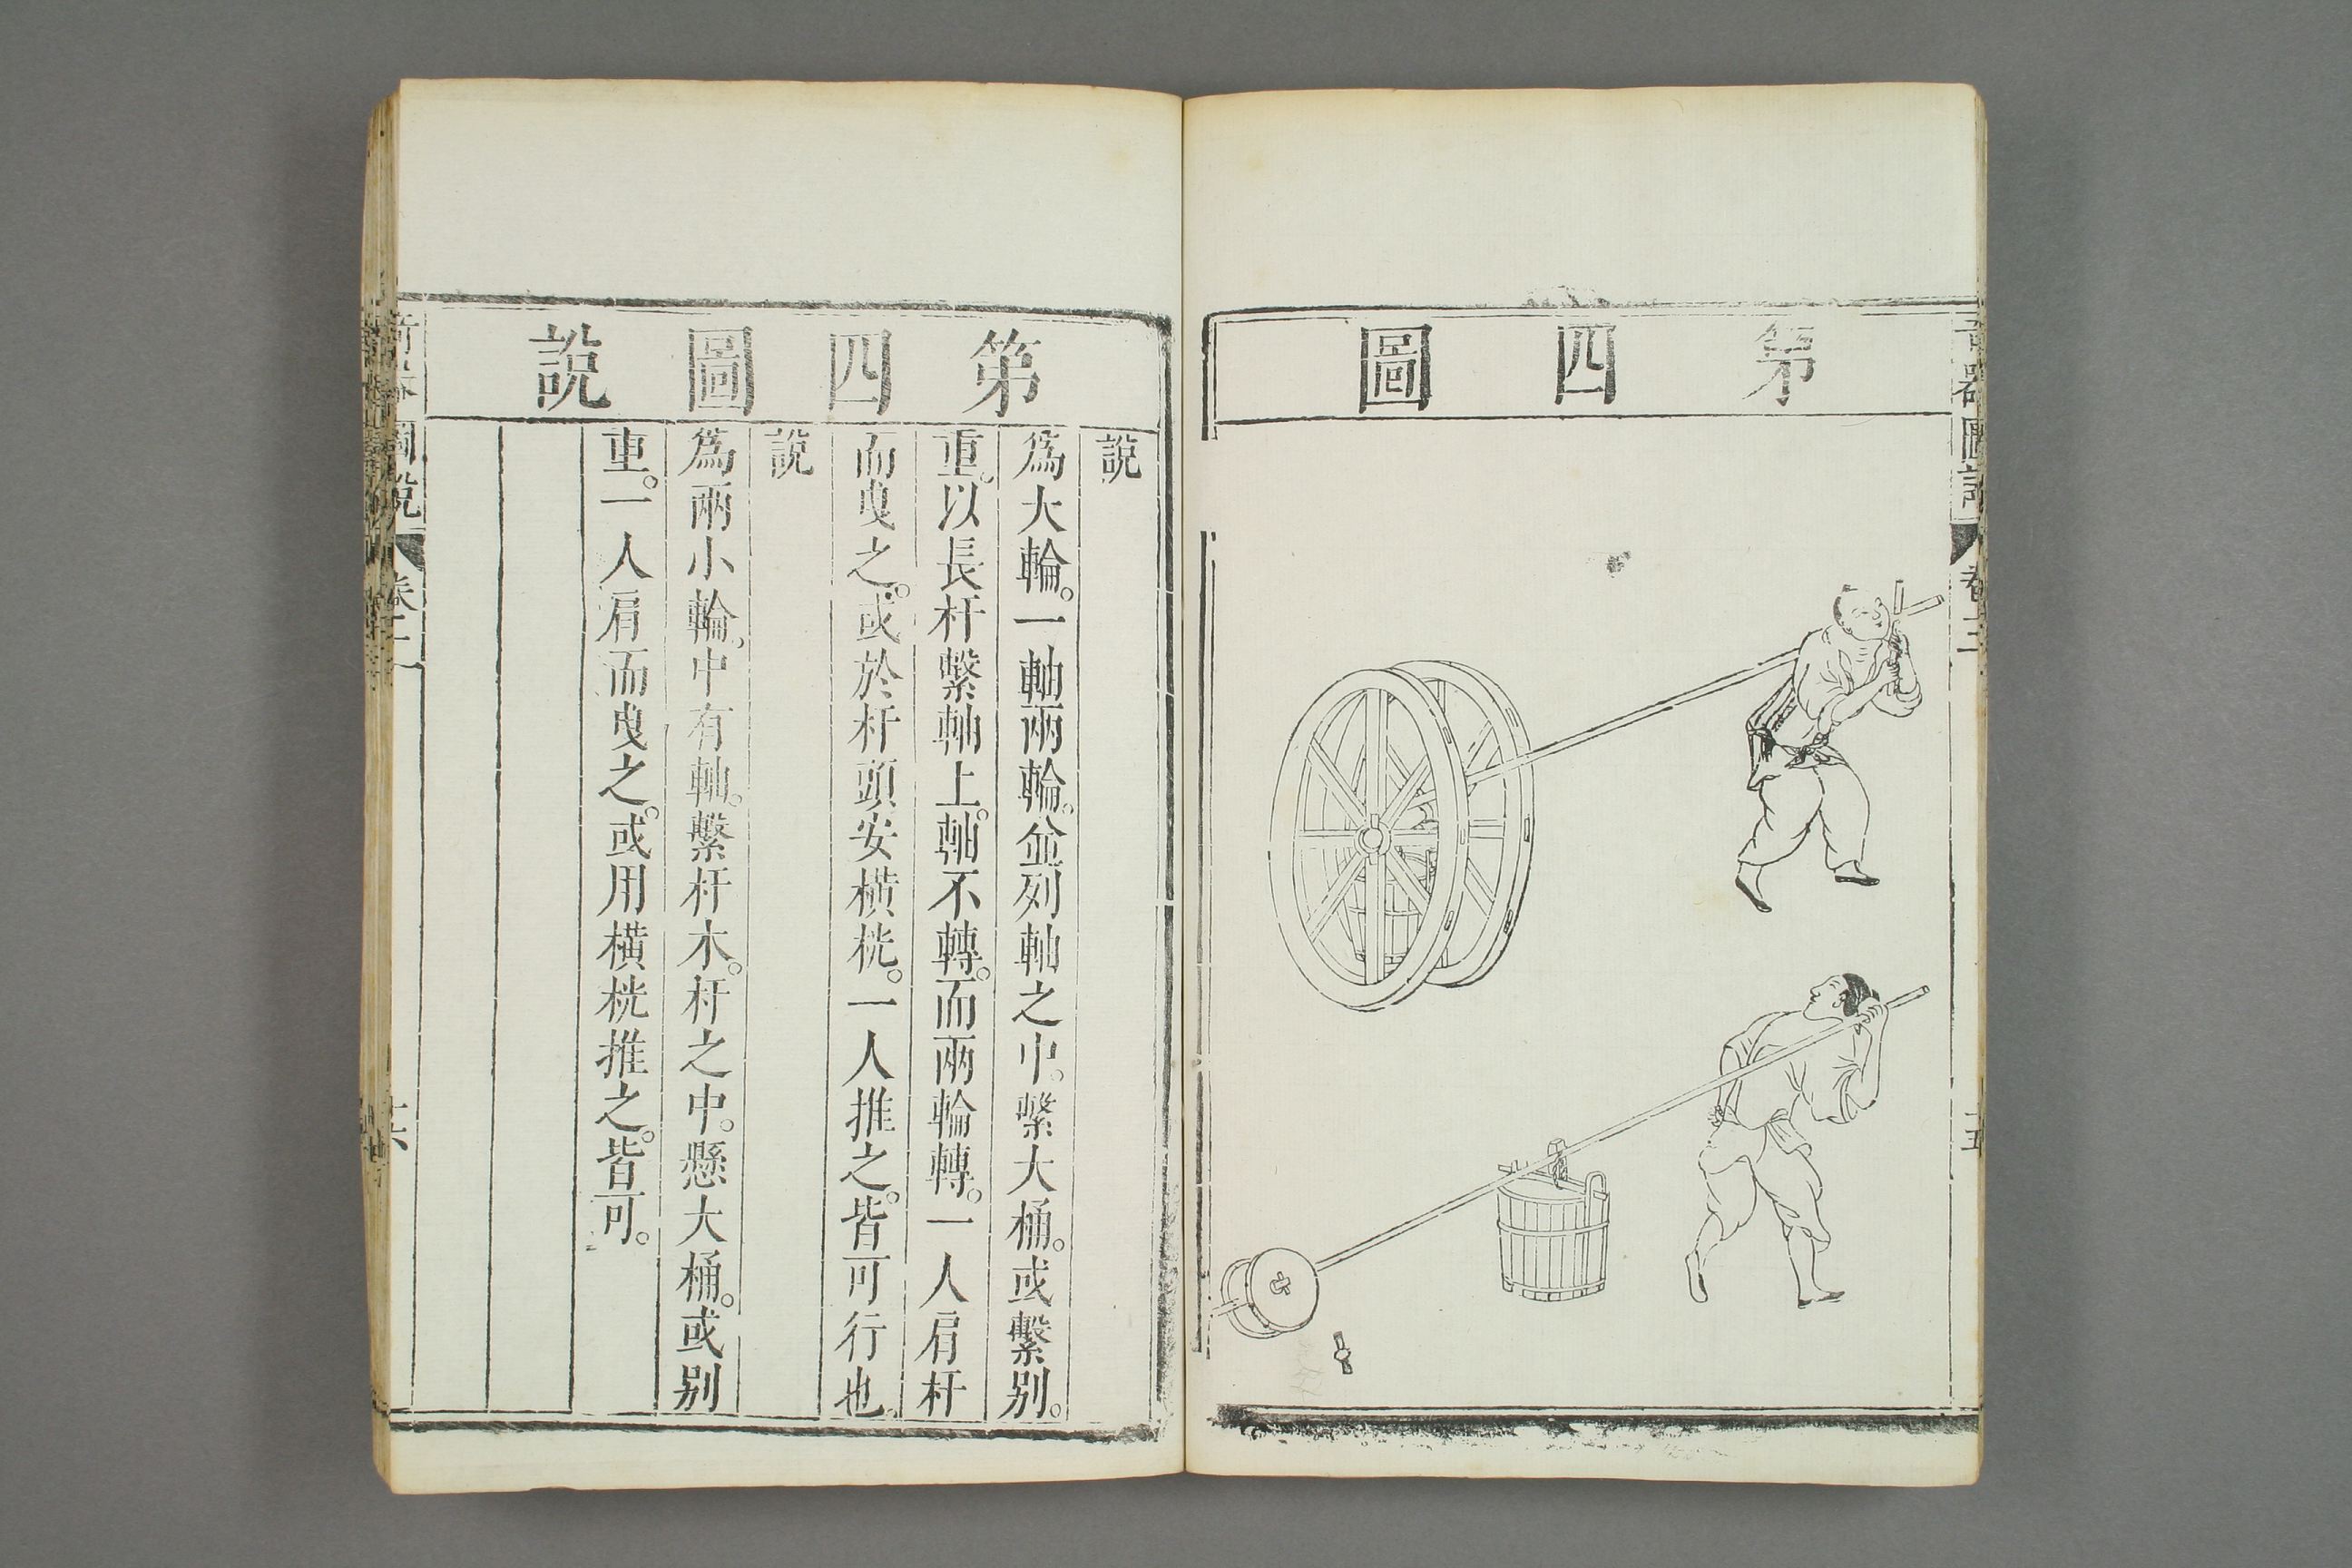 第四圖
第四圖說
說
爲大輪。一軸兩輪。並列軸之中。繫大桶。或繫別。
重。以長杆繫軸上。軸不轉。而兩輪轉。一人肩杆
而曳之。或於杆頭安橫桄。一人推之。皆可行也。
說
爲兩小輪。中有軸。繫杆木。杆之中。懸大桶。或別
重。一人肩而曳之。或用橫桄推之。皆可。